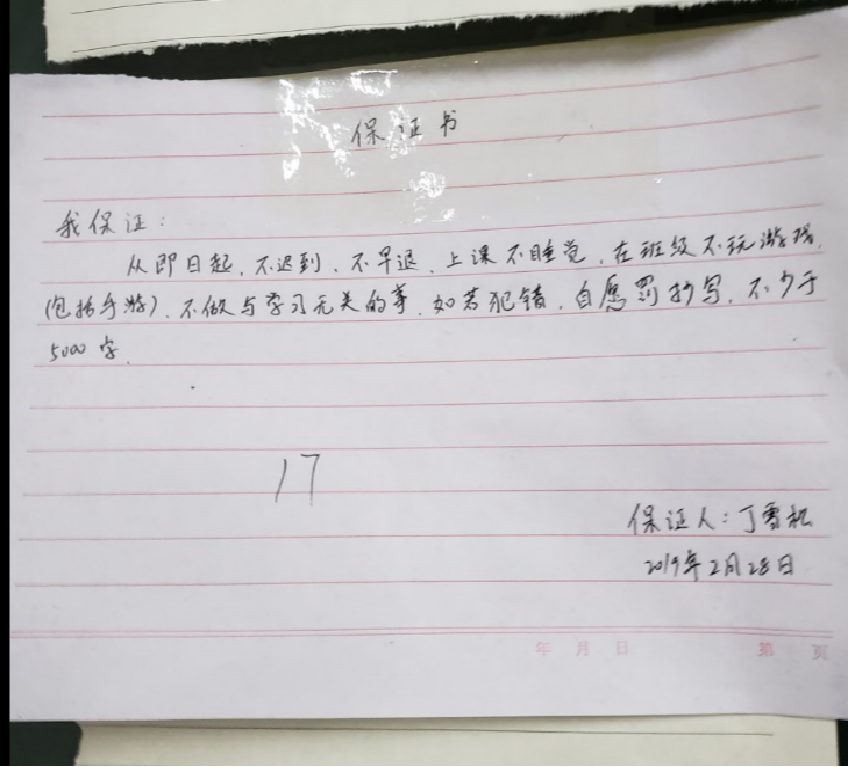 保证书
我保证:
从即日起,不迟到、不早退、上课不睡觉,在班级不玩游戏
(包括手游)、不做与学习无关的事,如若犯错,自愿罚抄写,不少于
5000字.
17
保证人:丁雪松
2019年2月28日
年 月 日 第 页